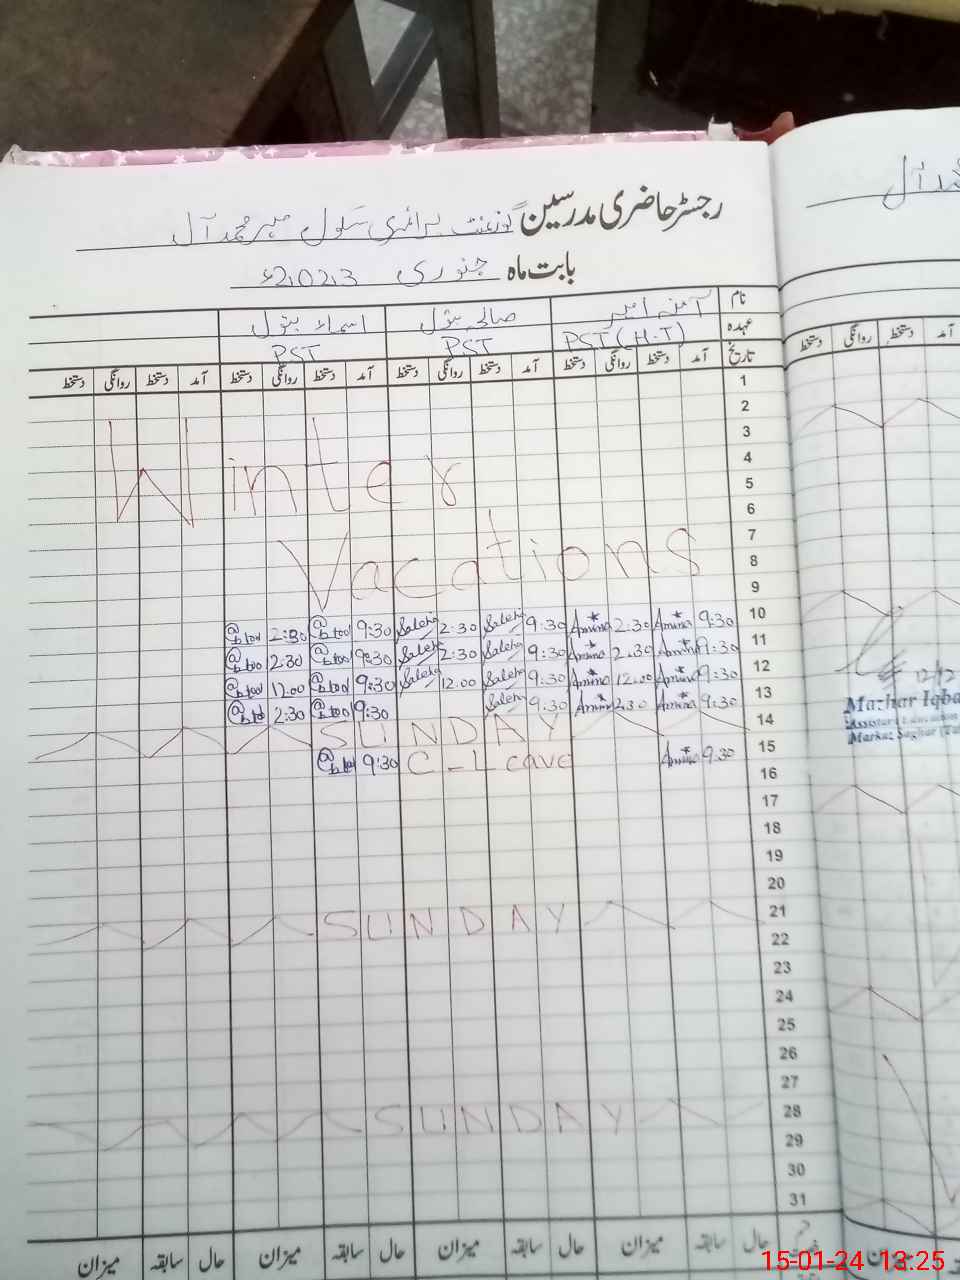 رجسٹر حاضری مدرسین گورنمنٹ پرائمری سکول مہر محمد آل
بابت ماہ جنوری 2023ء
نام آمنہ امیر صالحہ بتول اسماء بتول
عہدہ PST (H.T) PST PST
تاریخ آمد دستخط روانگی دستخط آمد دستخط روانگی دستخط آمد دستخط روانگی دستخط آمد دستخط روانگی دستخط
1
2
3
4
5
Winter
6
7
8
Vacations
9
10 9:30 Amina 2:30 Amina 9:30 Saleha 2:30 Saleha 9:30 Btool 2:30 Btool
11 9:30 Amina 2:30 Amina 9:30 Saleha 2:30 Saleha 9:30 Btool 2:30 Btool
12 9:30 Amina 12:00 Amina 9:30 Saleha 12:00 Saleha 9:30 Btool 12:00 Btool
13 9:30 Amina 2:30 Amina 9:30 Saleha 9:30 Btool 2:30 Btool
14 SUNDAY
15 9:30 Amina C-Leave 9:30 Btool
16
17
18
19
20
21 SUNDAY
22
23
24
25
26
27
28 SUNDAY
29
30
31
حال سابقہ میزان حال سابقہ میزان حال سابقہ میزان حال سابقہ میزان
دستخط روانگی دستخط آمد
Mazhar Iqba
Assistant Education
Markaz Saghar (Ta
میزان
15-01-24 13:25